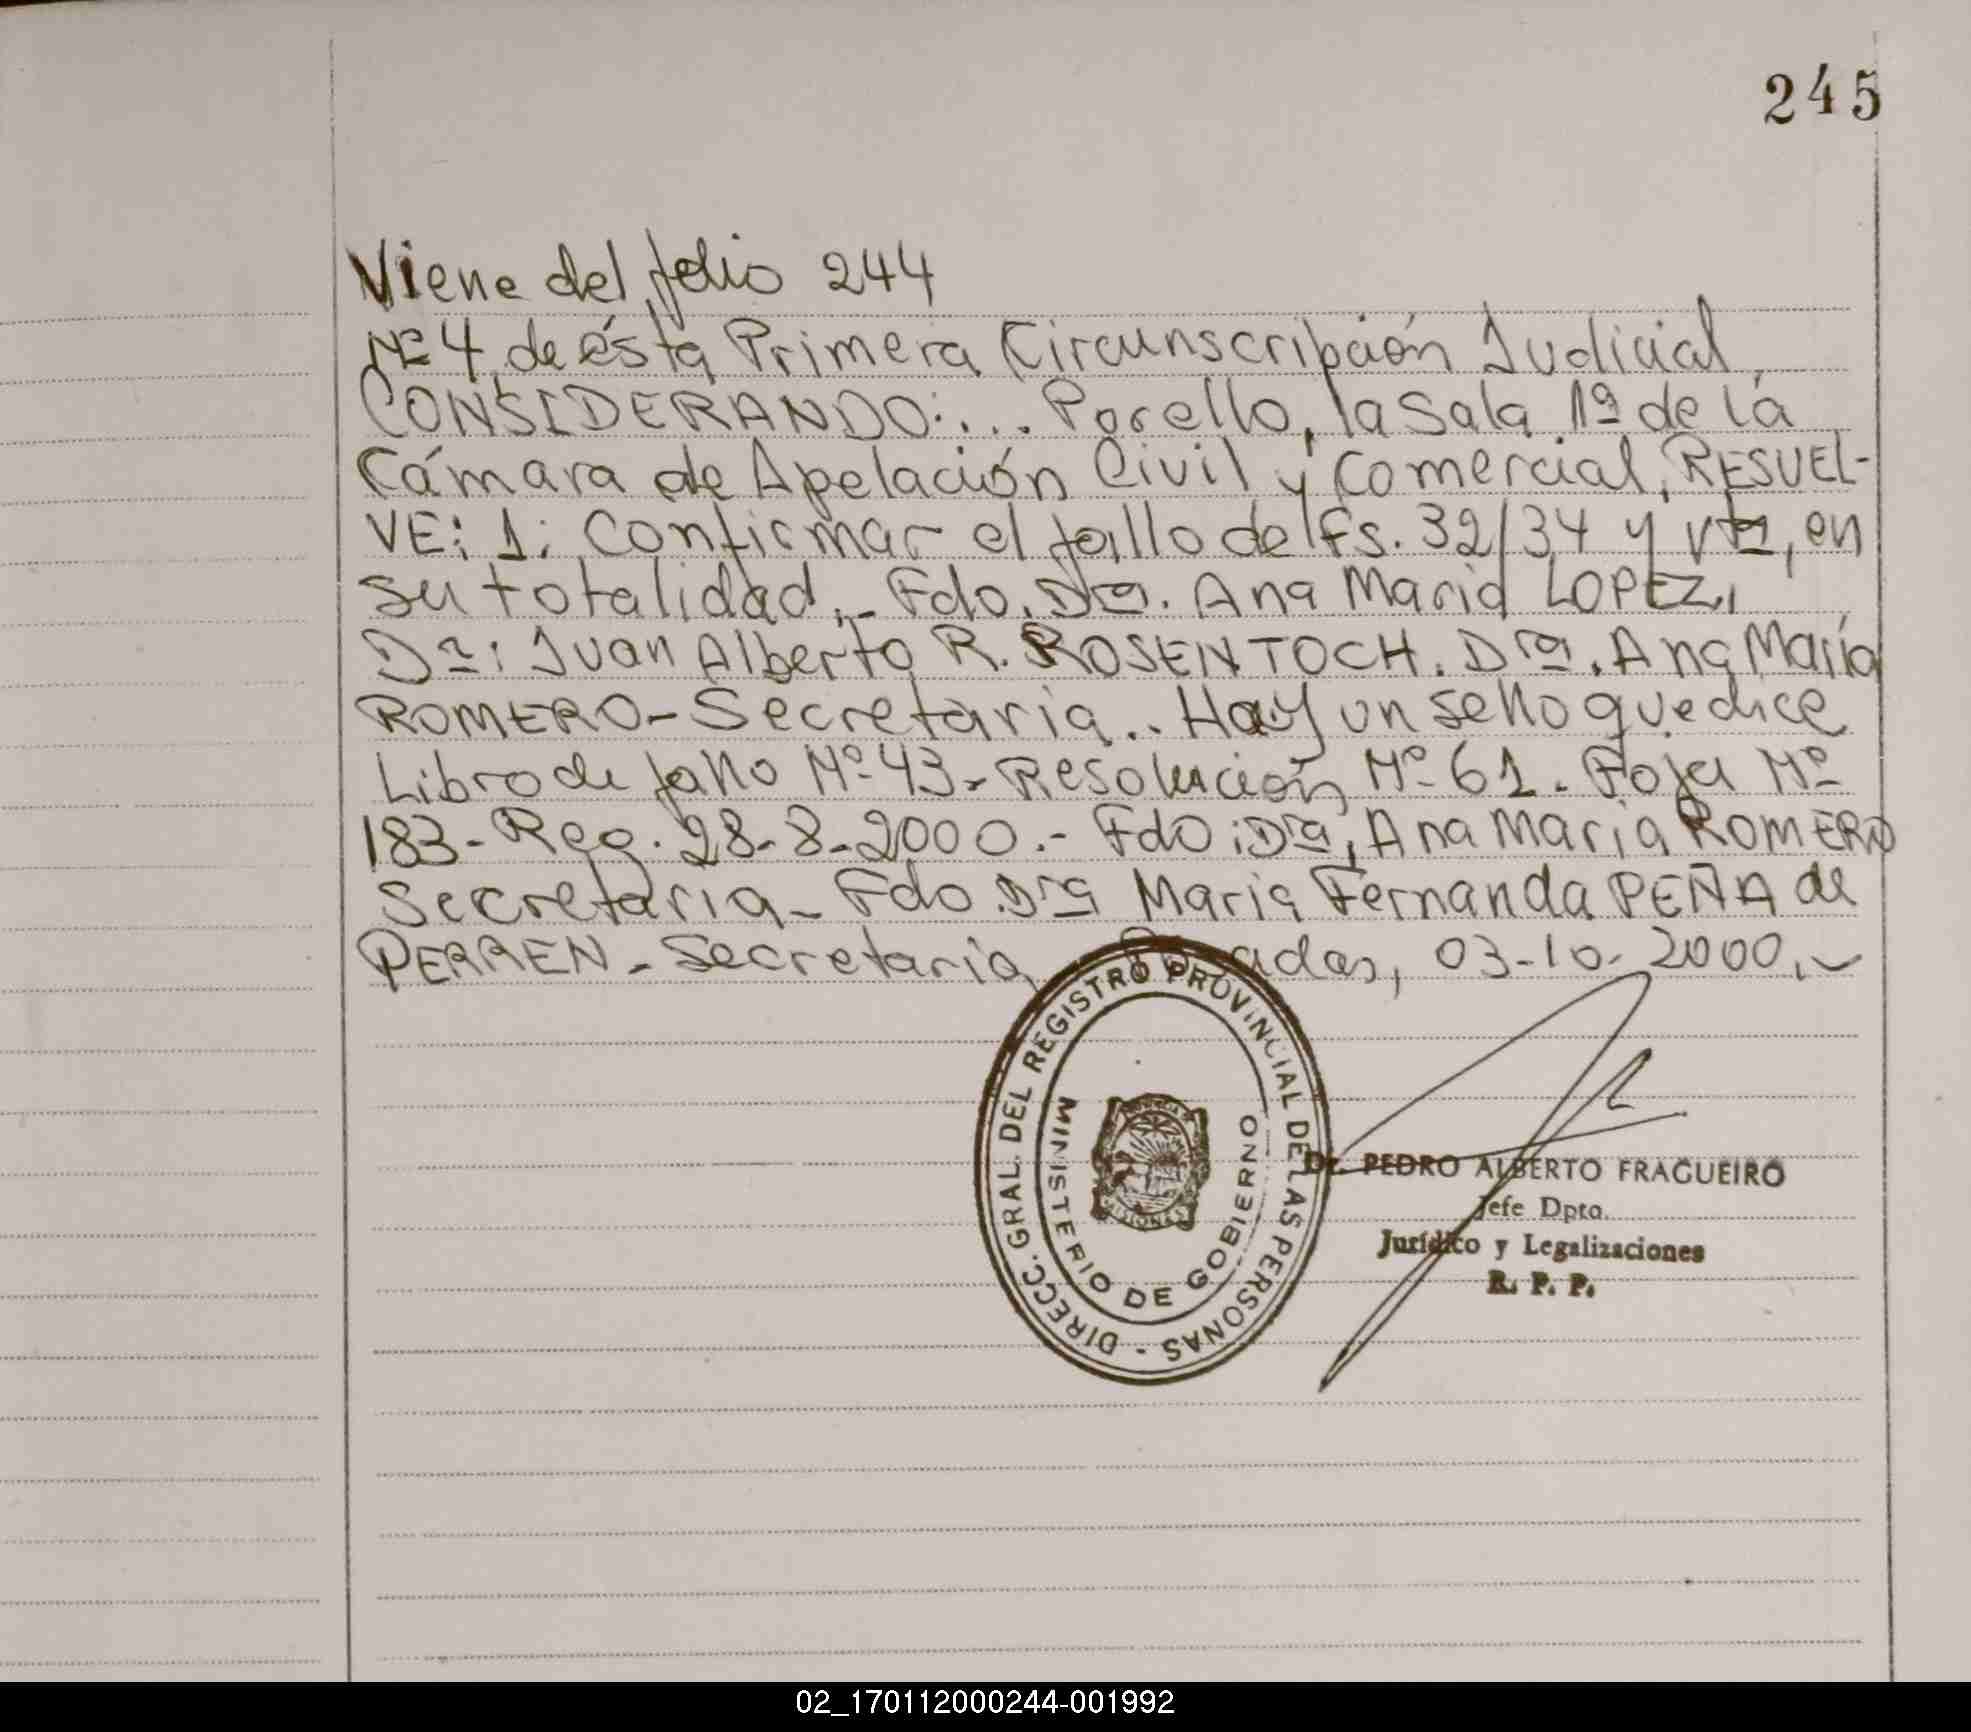 245
Viene del folio 244
Nº 4 de ésta Primera Circunscripción Judicial
CONSIDERANDO:... Porello, la Sala 1º de la
Cámara de Apelación Civil y Comercial, RESUEL-
VE: 1: Confirmar el fallo de fs. 32/34 y vta, en
su totalidad.- Fdo. Dra. Ana Maria LOPEZ,
Dr: Juan Alberto R. ROSENTOCH. Dra. Ana María
ROMERO - Secretaria.. Hay un sello que dice
Libro de fallo Nº 43 - Resolución Nº 61. Foja Nº
183 - Reg. 28-8-2000.- Fdo: Dra, Ana Maria ROMERO
Secretaria - Fdo. Dra Maria Fernanda PEÑA de
PERREN - Secretaria Posadas, 03-10-2000.-
DIRECC. GRAL. DEL REGISTRO PROVINCIAL DE LAS PERSONAS -
MINISTERIO DE GOBIERNO
MISIONES
Dr. PEDRO ALBERTO FRAGUEIRO
Jefe Dpto.
Jurídico y Legalizaciones
R. P. P.
02_170112000244-001992